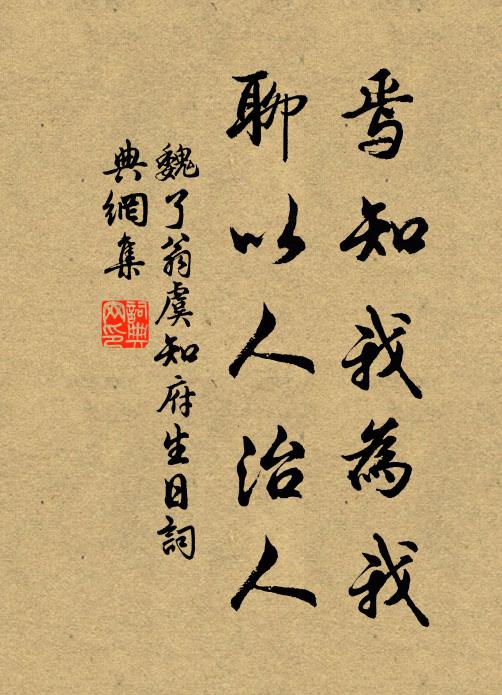 焉知我為我
聊以人治人
魏了翁虞知府生日詞
典網集
詞典网印